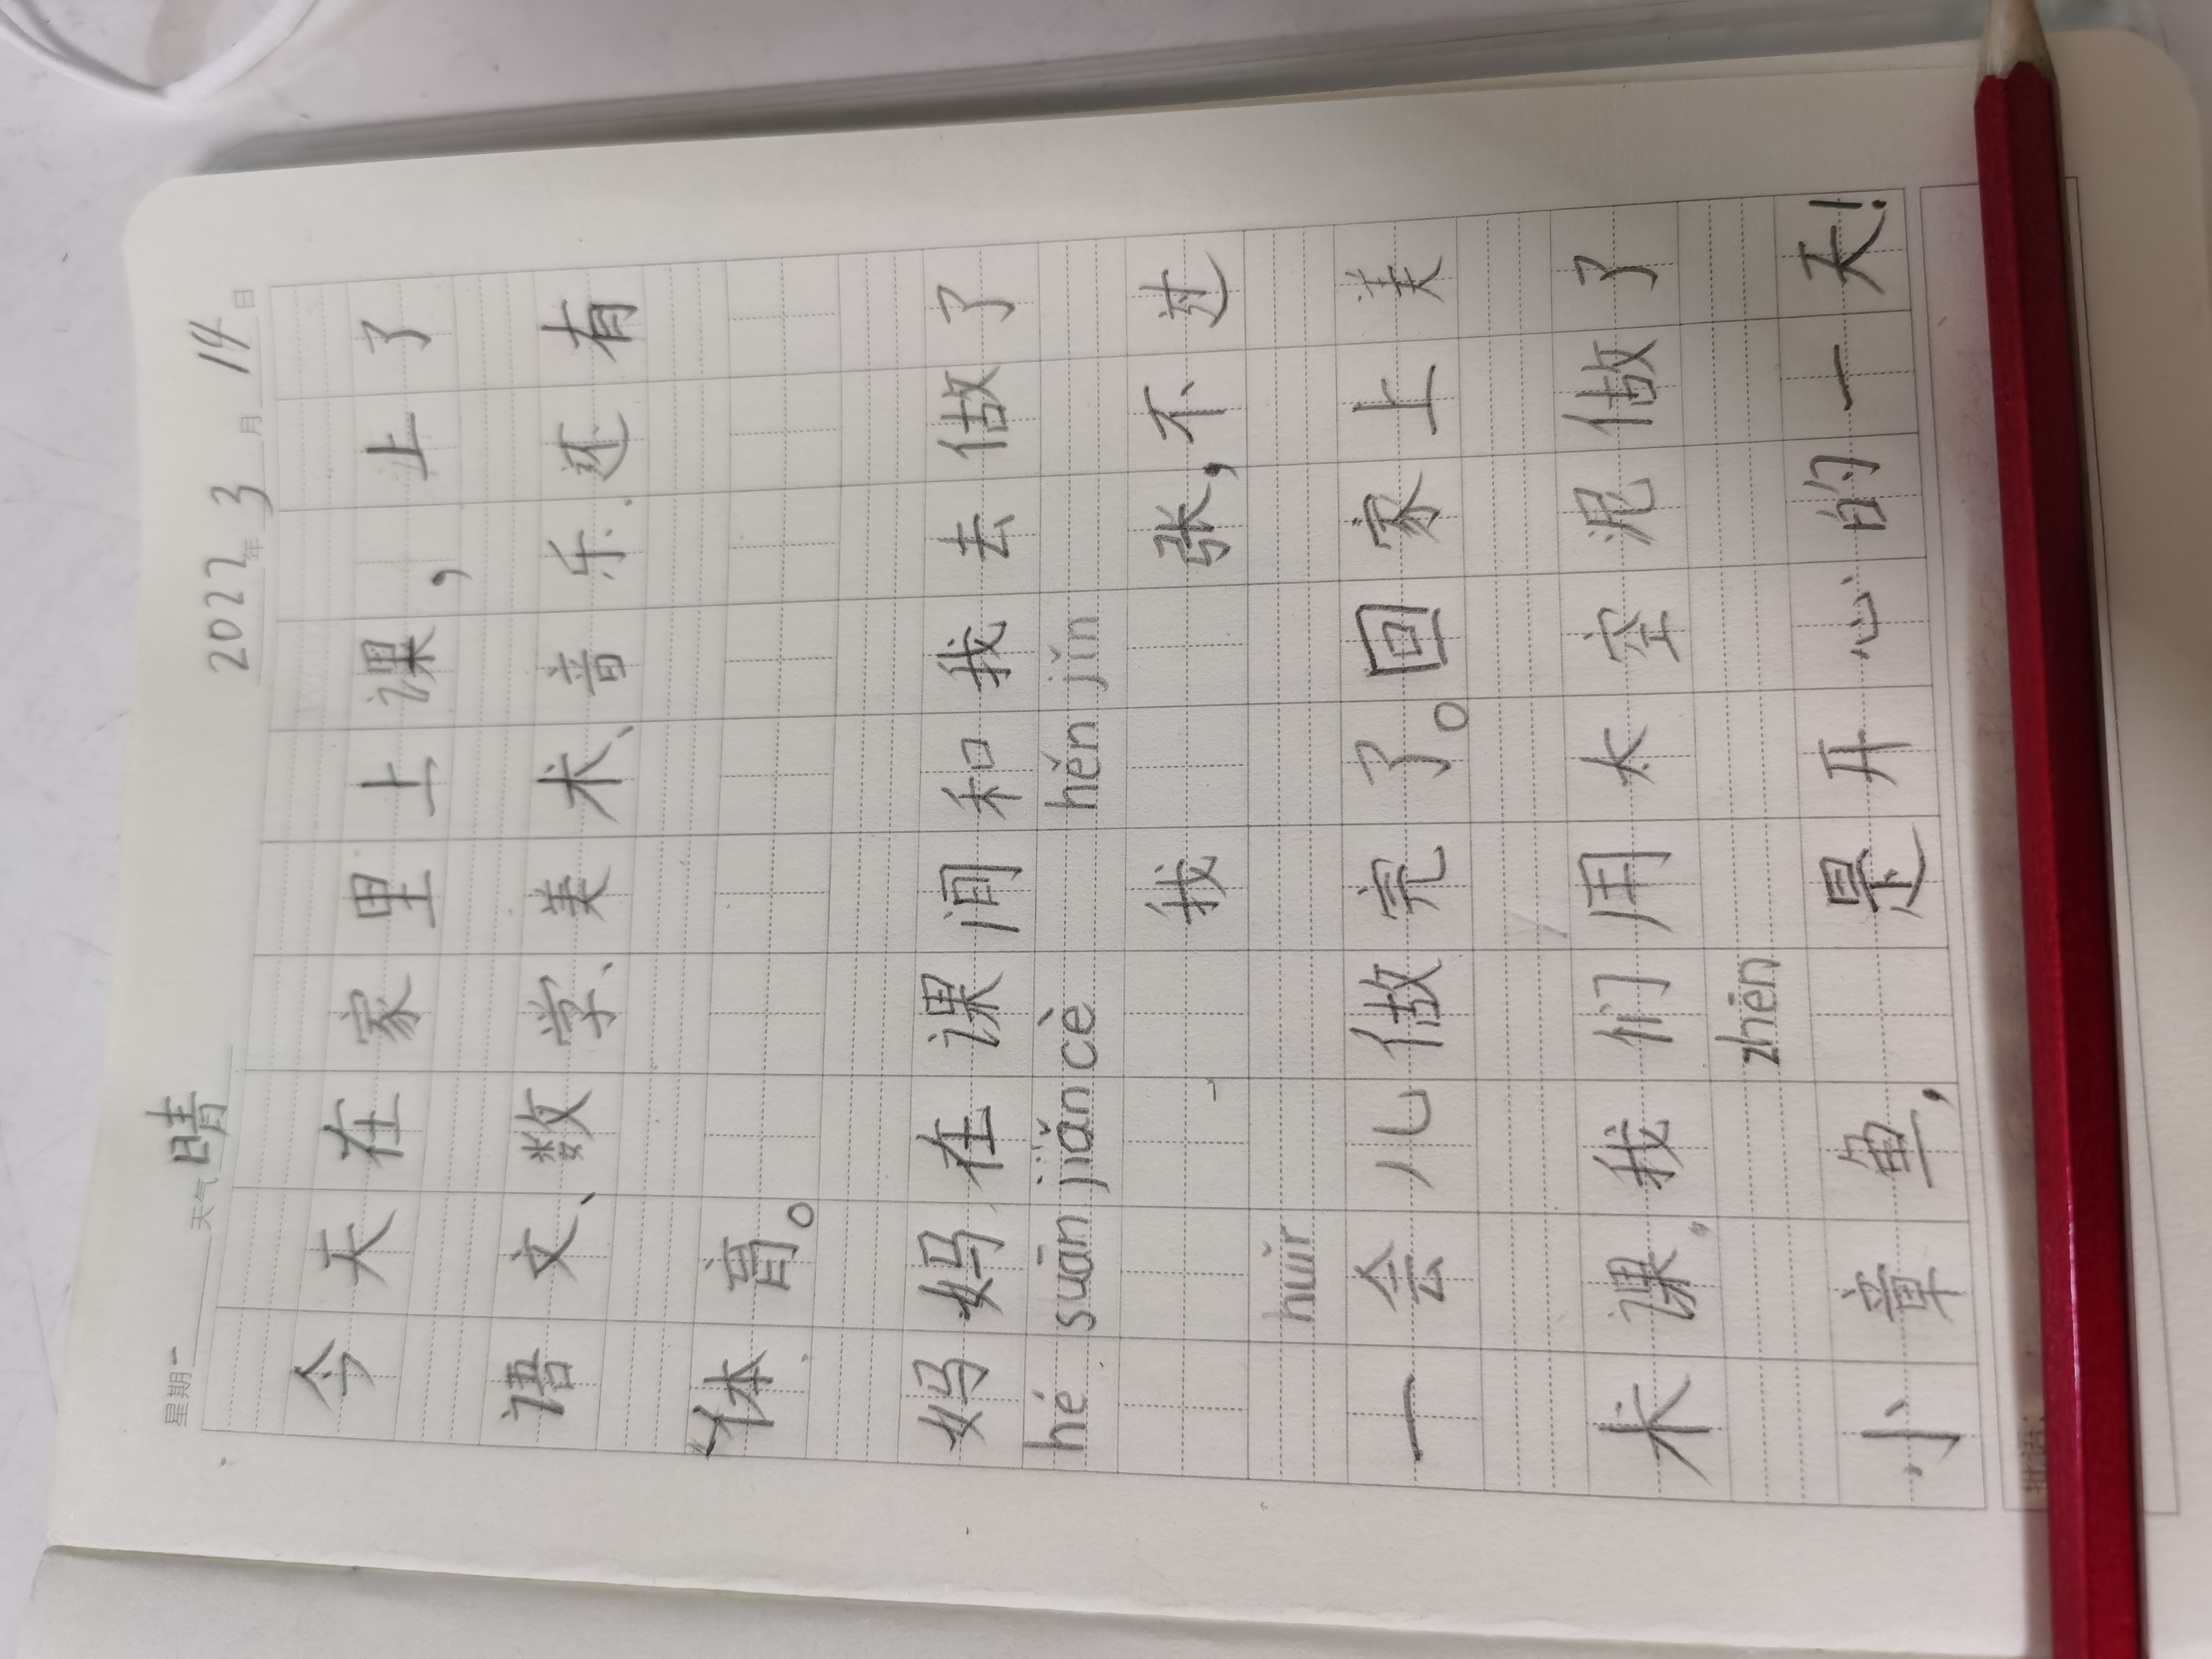 星期一 天气晴 2022年3月14日
今天在家里上课，上了
语文、数学、美术、音乐.还有
体育。
妈妈在课间和我去做了
hé suān jiǎn cè hěn jǐn
我 张,不过
huǐr
一会儿做完了。回家上美
术课。我们用太空泥做了
zhēn
小章鱼, 是开心的一天!
批语: